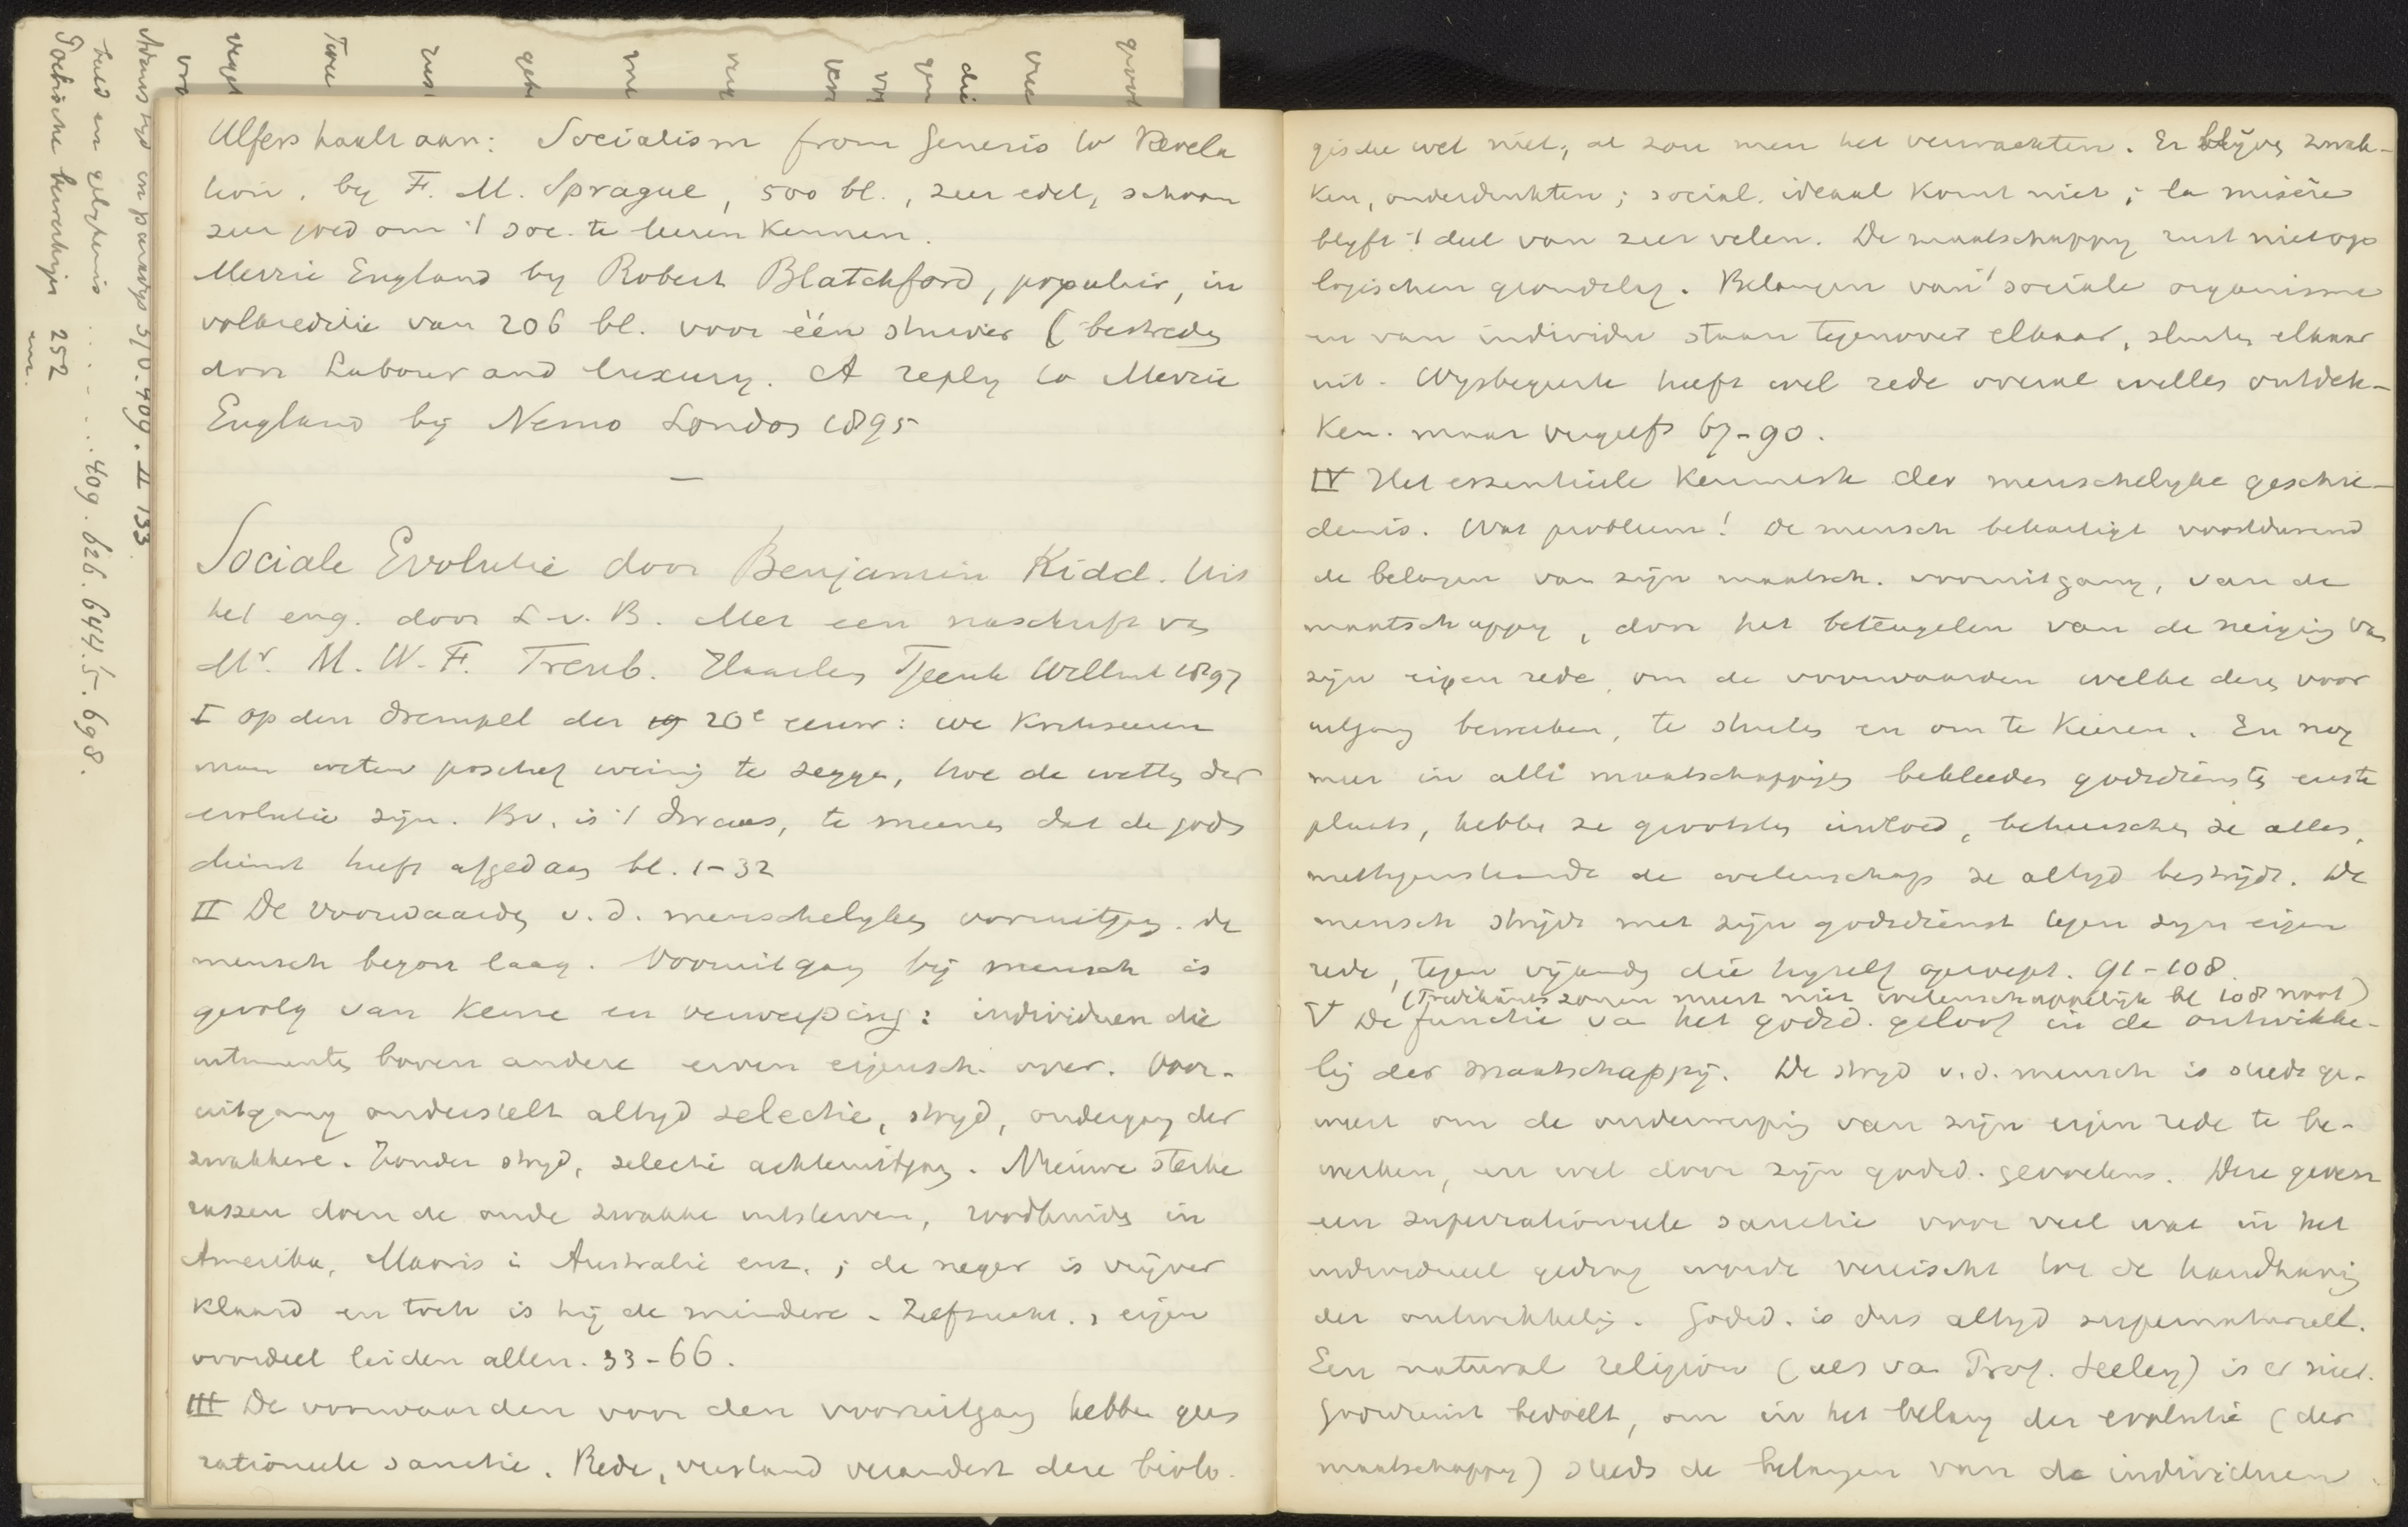 Ulfers haalt aan: Socialism from Genesis to Revela
tion. by F. M. Sprague, 500 bl., zeer edel, schoon
zeer goed om 't soc. te leeren kennen.
Merrie England by Robert Blatchford, populair, in
volkseditie van 206 bl. voor één stuiver (bestreden
door Labour and luxury. A reply to Merrie
England by Nemo London 1895
—
Sociale Evolutie door Benjamin Kidd. Uit
het eng. door L. v. B. Met een naschrift van
Mr. M. W. F. Treub. Haarlem Tjeenk Willink 1897
I Op den drempel der 20e eeuw: we
maar weten weinig te zeggen, hoe de wetten der
evolutie zijn. Bv. is 't dwaas, te meenen dat de gods
dienst heeft afgedaan bl. 1-32
II De voorwaarden v. d. menschelyken vooruitgang. de
mensch begon laag. Vooruitgang bij mensch is
gevolg van keuze en verwerping: individuen die
uitmunten boven andere erven eigensch. over. Voor-
uitgang onderstelt altyd selectie, stryd, ondergang der
zwakkere. Zonder stryd, selectie achteruitgang. Nieuwe sterke
rassen doen de oude zwakke uitsterven, roodhuiden in
Amerika, Maoris in Australië enz.; de neger is vrijver
klaard en toch is hij de mindere. Zelfzucht, eigen
voordeel leiden allen. 33-66.
III De voorwaarden voor den vooruitgang hebben geen
rationeele sanctie. Rede, verstand verandert deze biolo-
gische wet niet, al zou men het verwachten. Er blijven zwak-
ken, onderdrukten; social. ideaal komt niet; la misère
blyft 't deel van zeer velen. De maatschappy rust niet op
logischen grondslag. Belangen van 't sociale organisme
en van individu staan tegenover elkaar, sluiten elkaar
uit. Wysbegeerte heeft wel rede overal willen ontdek-
ken. maar vergeefs 67-90.
IV Het essentieele kenmerk der menschelyke geschie-
denis. Wat probleem! De mensch behartigt voortdurend
de belangen van zijn maatsch. vooruitgang, van de
maatschappy, door het beteugelen van de neiging van
zijn eigen rede, om de voorwaarden welke dezen voor
uitgang bewerken, te stuiten en om te keeren. En nog
meer in alle maatschappijen bekleeden godsdiensten eerste
plaats, hebben ze grootsten invloed, beheerschen ze alles,
niettegenstaande de wetenschap ze altyd bestrijdt. De
mensch strijdt met zijn godsdienst tegen zyn eigen
rede, tegen vijanden die hyzelf opwerpt. 91-108.
(Predikants zonen meest niet wetenschappelijk bl 108 noot)
V De functie van het godsd. geloof in de ontwikke-
ling der maatschappij. De stryd v. d. mensch is steeds ge-
weest om de onderwerping van zijn eigen rede te be-
werken, en wel door zijn godsd. gevoelens. Deze geven
een superrationeele sanctie voor veel wat in het
individueel gedrag wordt vereischt tot de handhaving
der ontwikkeling. Godsd. is dus altyd supernatureel.
Een natural religion (als van Prof. Seeley) is er niet.
Godsdienst bedoelt, om in het belang der evolutie (der
maatschappy) steeds de belangen van de individuen